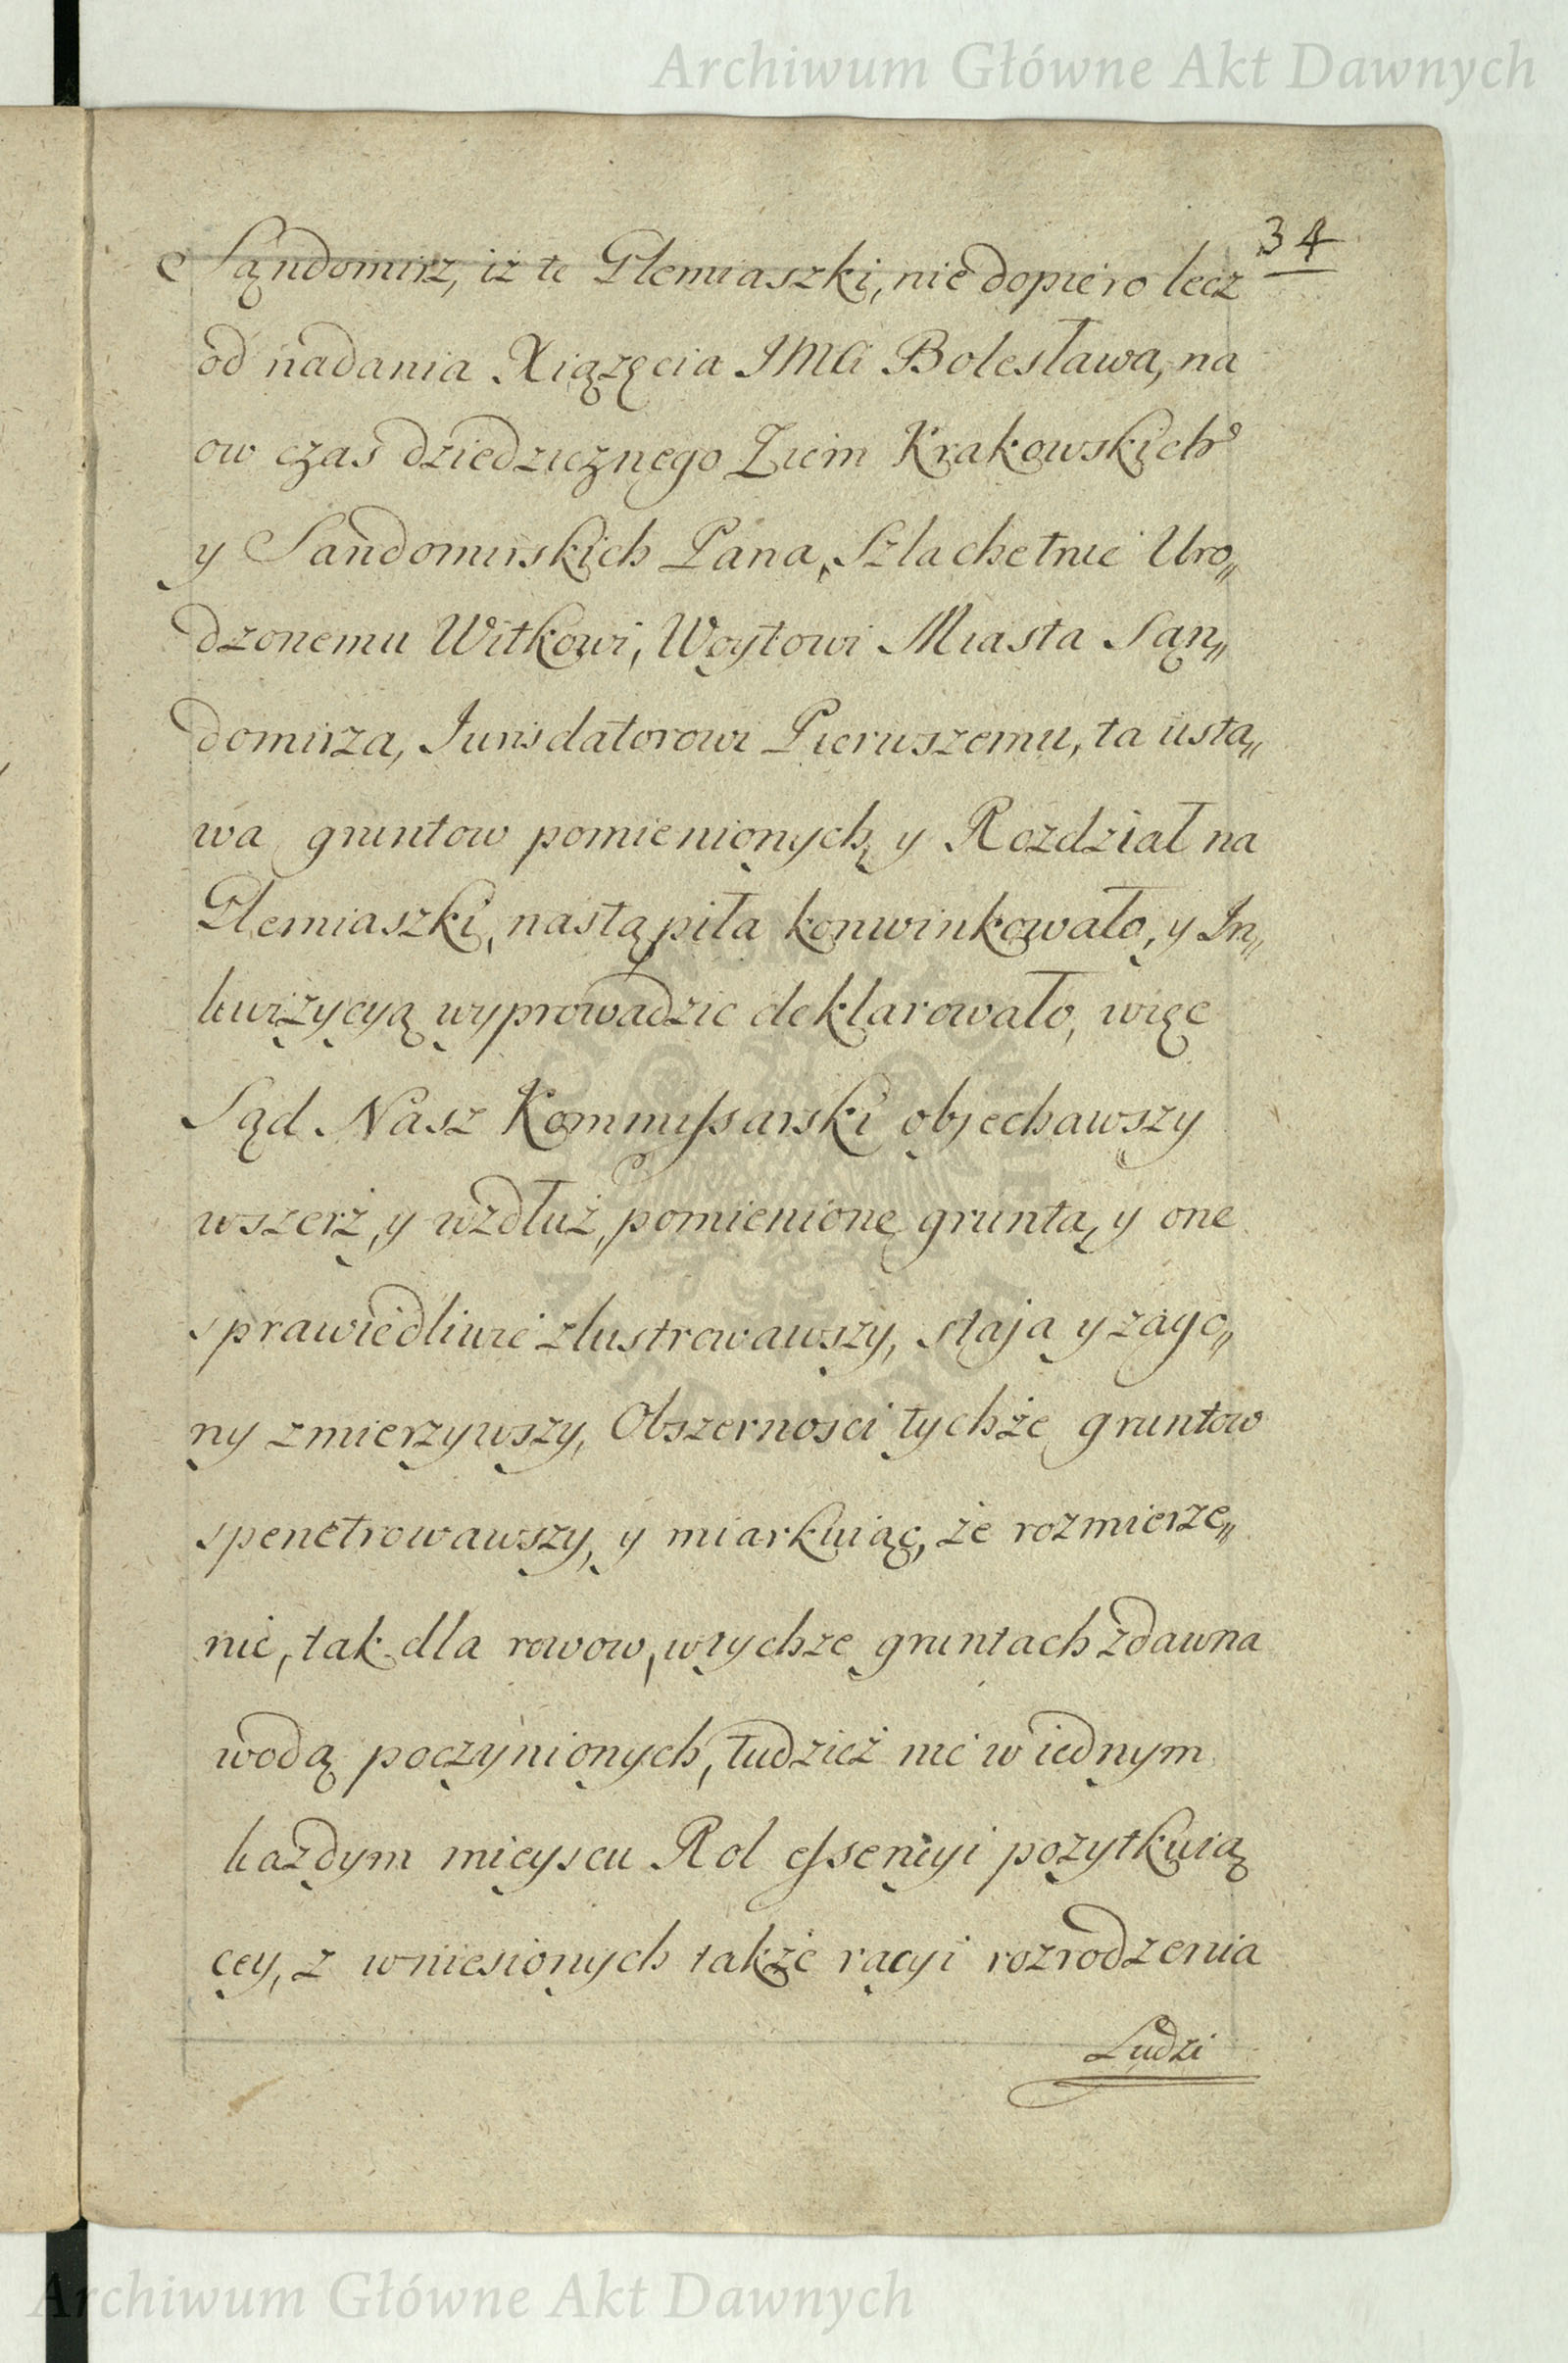 Archiwum Główne Akt Dawnych
34
Sąndomirz, iz te Plemiaszki, nie dopiero lecz
od nadania Xiązęcia JMći Bolesława, na
ow czas dziedzicznego Ziem Krakowskich
y Sandomirskich Pana, Szlachetnie Uro„
dzonemu Witkowi, Woytowi Miasta Sąn„
domirza, Jurisdatorowi Pierwszemu, ta usta„
wa gruntow pomienionych, y Rozdział na
Plemiaszki, nastąpiła konwinkowało, y In„
kwizycyą wyprowadzic deklarowało, więc
Sąd Nasz Kommissarski objechawszy
wszerż, y wzdłuż, pomienione grunta, y one
sprawiedliwie zlustrowawszy, staja y zago„
ny zmierzywszy, Obszernosci tychże gruntow
spenetrowawszy, y miarkuiąc, że rozmierze„
nie, tak dla rowow, w tychze gruntach zdawna
wodą poczynionych, tudzież nie w iednym
każdym mieyscu Rol essencyi pozytkuią
cey, z wniesionych także racyi rozrodzenia
Ludzi
Archiwum Główne Akt Dawnych